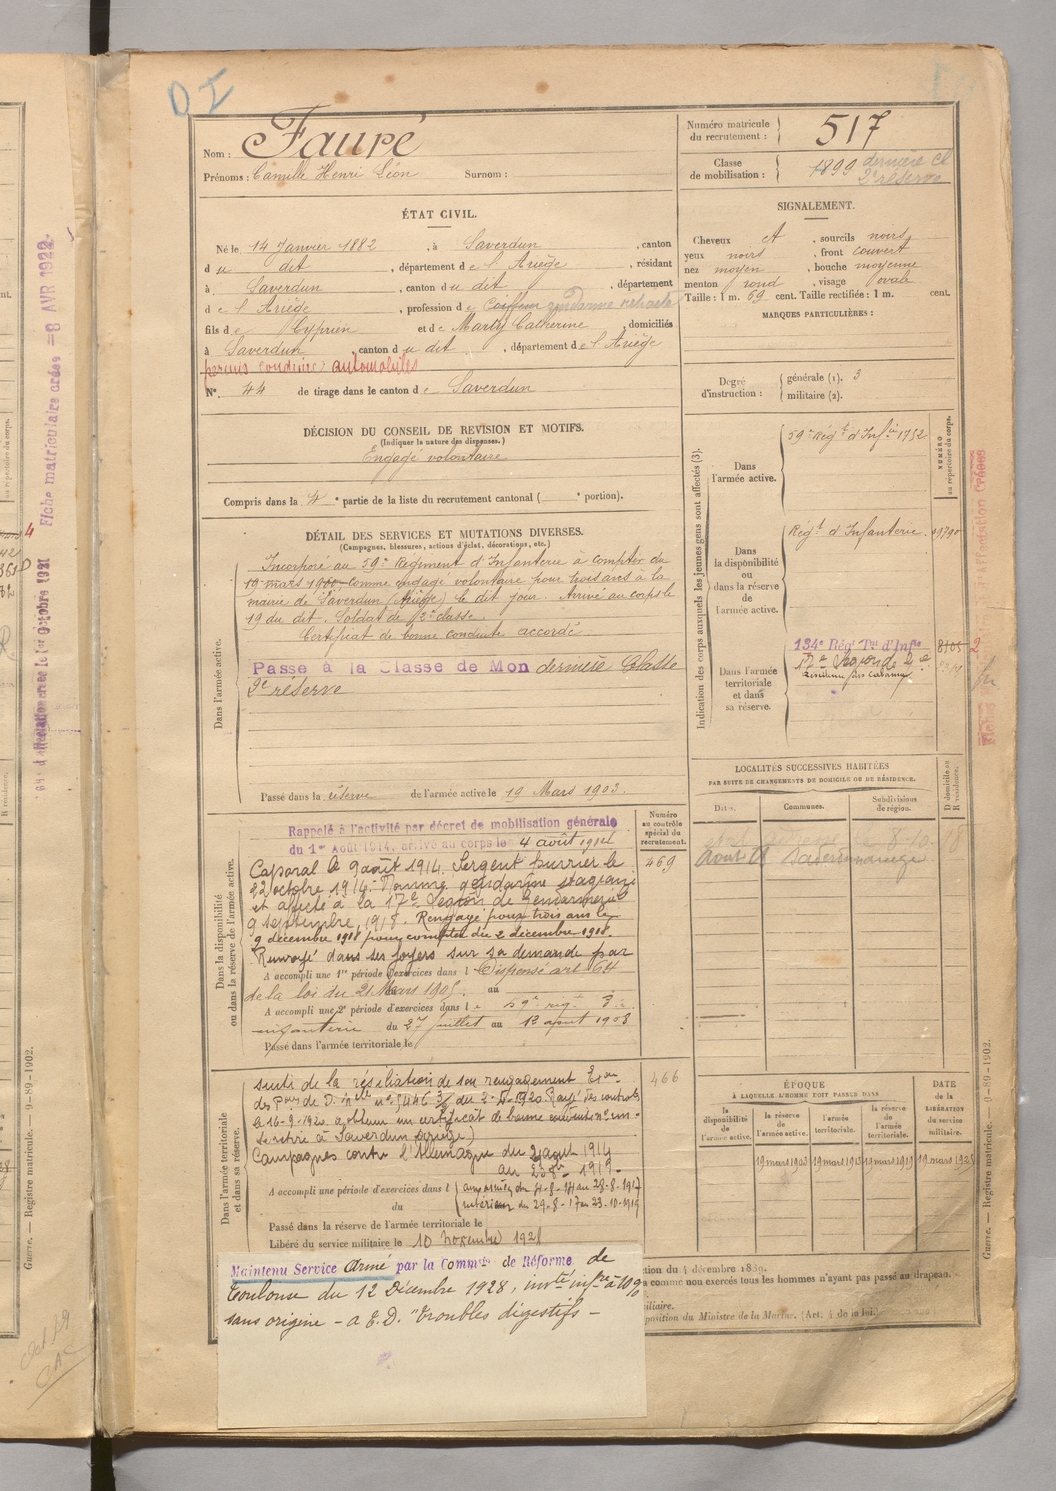 DI
Nom : Fauré
Prénoms : Camille Henri Léon Surnom :
Numéro matricule du recrutement : 517
Classe de mobilisation : 1899 dernière cl
2e réserve
ÉTAT CIVIL.
Né le 14 Janvier 1882, à Saverdun, canton
du dit, département de l'Ariège, résidant
à Saverdun, canton du dit, département
de l'Ariège, profession de Coiffeur gendarme retraité
fils de Cyprien et de Marty Catherine, domiciliés
à Saverdun, canton du dit, département de l'Ariège
permis conduire automobiles
N° 44 de tirage dans le canton de Saverdun
SIGNALEMENT.
Cheveux et, sourcils noirs
yeux noirs, front couvert
nez moyen, bouche moyenne
menton rond, visage ovale
Taille : 1 m. 69 cent. Taille rectifiée : 1 m. cent.
MARQUES PARTICULIÈRES :
Degré d'instruction : générale (1). 3
militaire (2).
DÉCISION DU CONSEIL DE REVISION ET MOTIFS.
(Indiquer la nature des dispenses.)
Engagé volontaire
Compris dans la 4e partie de la liste du recrutement cantonal ( e portion).
DÉTAIL DES SERVICES ET MUTATIONS DIVERSES.
(Campagnes, blessures, actions d'éclat, décorations, etc.)
Dans l'armée active.
Incorporé au 59e Régiment d'Infanterie à compter du
19 mars 1900 comme engagé volontaire pour trois ans à la
mairie de Saverdun (Ariège) le dit jour. Arrivé au corps le
19 du dit. Soldat de 2e classe.
Certificat de bonne conduite accordé.
Passe à la Classe de Mon dernière Classe
2e réserve
Passé dans la réserve de l'armée active le 19 Mars 1903.
Indication des corps auxquels les jeunes gens sont affectés (3).
NUMÉRO au répertoire du corps.
Dans l'armée active.
59e Régt d'Infie 1752
Dans la disponibilité ou dans la réserve de l'armée active.
Régt d'Infanterie.
Dans l'armée territoriale et dans sa réserve.
134e Régt Tal d'Infie 8105
LOCALITÉS SUCCESSIVES HABITÉES
PAR SUITE DE CHANGEMENTS DE DOMICILE OU DE RÉSIDENCE.
Dates. Communes. Subdivisions de région. D domicile ou R résidence.
Dans la disponibilité ou dans la réserve de l'armée active.
Numéro au contrôle spécial du recrutement.
469
Rappelé à l'activité par décret de mobilisation générale
du 1er Août 1914, arrivé au corps le 4 août 1914
Caporal le 9 août 1914. Sergent fourrier le
22 octobre 1914. Nommé gendarme stagiaire
et affecté à la 17e Légion de Gendarmerie
9 septembre 1918. Rengagé pour trois ans le
9 décembre 1918 pour compter du 2 décembre 1918.
Renvoyé dans ses foyers sur sa demande par
A accompli une 1re période d'exercices dans l Dispensé art 64
de la loi du 21 Mars 1905. au
A accompli une 2e période d'exercices dans le 59e régt d'
infanterie du 27 juillet au 12 août 1908
Passé dans l'armée territoriale le
Dans l'armée territoriale et dans sa réserve.
466
suite de la résiliation de son rengagement
Rayé des contrôles
le 16-9-1920. obtenu un certificat de bonne conduite
se retire à Saverdun (Ariège)
Campagnes contre l'Allemagne du 2 août 1914
au 23 8bre 1919.
A accompli une période d'exercices dans l
du
aux armées du 4-8-14 au 28-8-1917
intérieur du 29-8-17 au 23-10-1919
Passé dans la réserve de l'armée territoriale le
Libéré du service militaire le 10 novembre 1928
ÉPOQUE
À LAQUELLE L'HOMME DOIT PASSER DANS
la disponibilité de l'armée active. la réserve de l'armée active. l'armée territoriale. la réserve de l'armée territoriale. DATE de la LIBÉRATION du service militaire.
19 mars 1903 19 mars 1913 19 mars 1919 19 mars 1925
Maintenu Service armé par la Comm. de Réforme de
Toulouse du 12 Décembre 1928, invté infre à 10%
sans origine - a E.D. "Troubles digestifs -
tion du 4 décembre 1889.
a comme non exercés tous les hommes n'ayant pas passé au drapeau.
iliaire.
position du Ministre de la Marine. (Art. 4 de la loi.)
Guerre. — Registre matricule. — 9-89-1902.
Guerre. — Registre matricule. 9-89-1902.
Fiche matriculaire créée = 8 AVR 1922